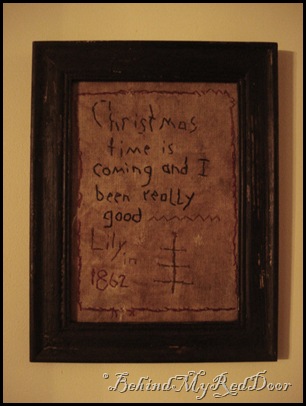 Christmas
time is
coming and I
been really
good
Lily
in
1862
© BehindMyRedDoor